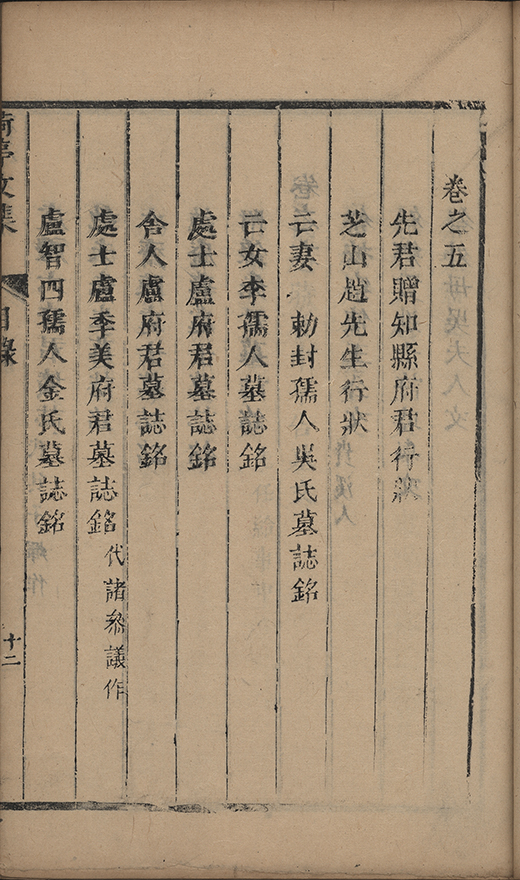 卷之五
先君贈知縣府君行狀
芝山趙先生行狀
亡妻 勅封孺人吳氏墓誌銘
亡女李孺人墓誌銘
處士盧府君墓誌銘
舍人盧府君墓誌銘
處士盧季美府君墓誌銘 代諸叅議作
盧智四孺人金氏墓誌銘
亭文集
目錄
十二